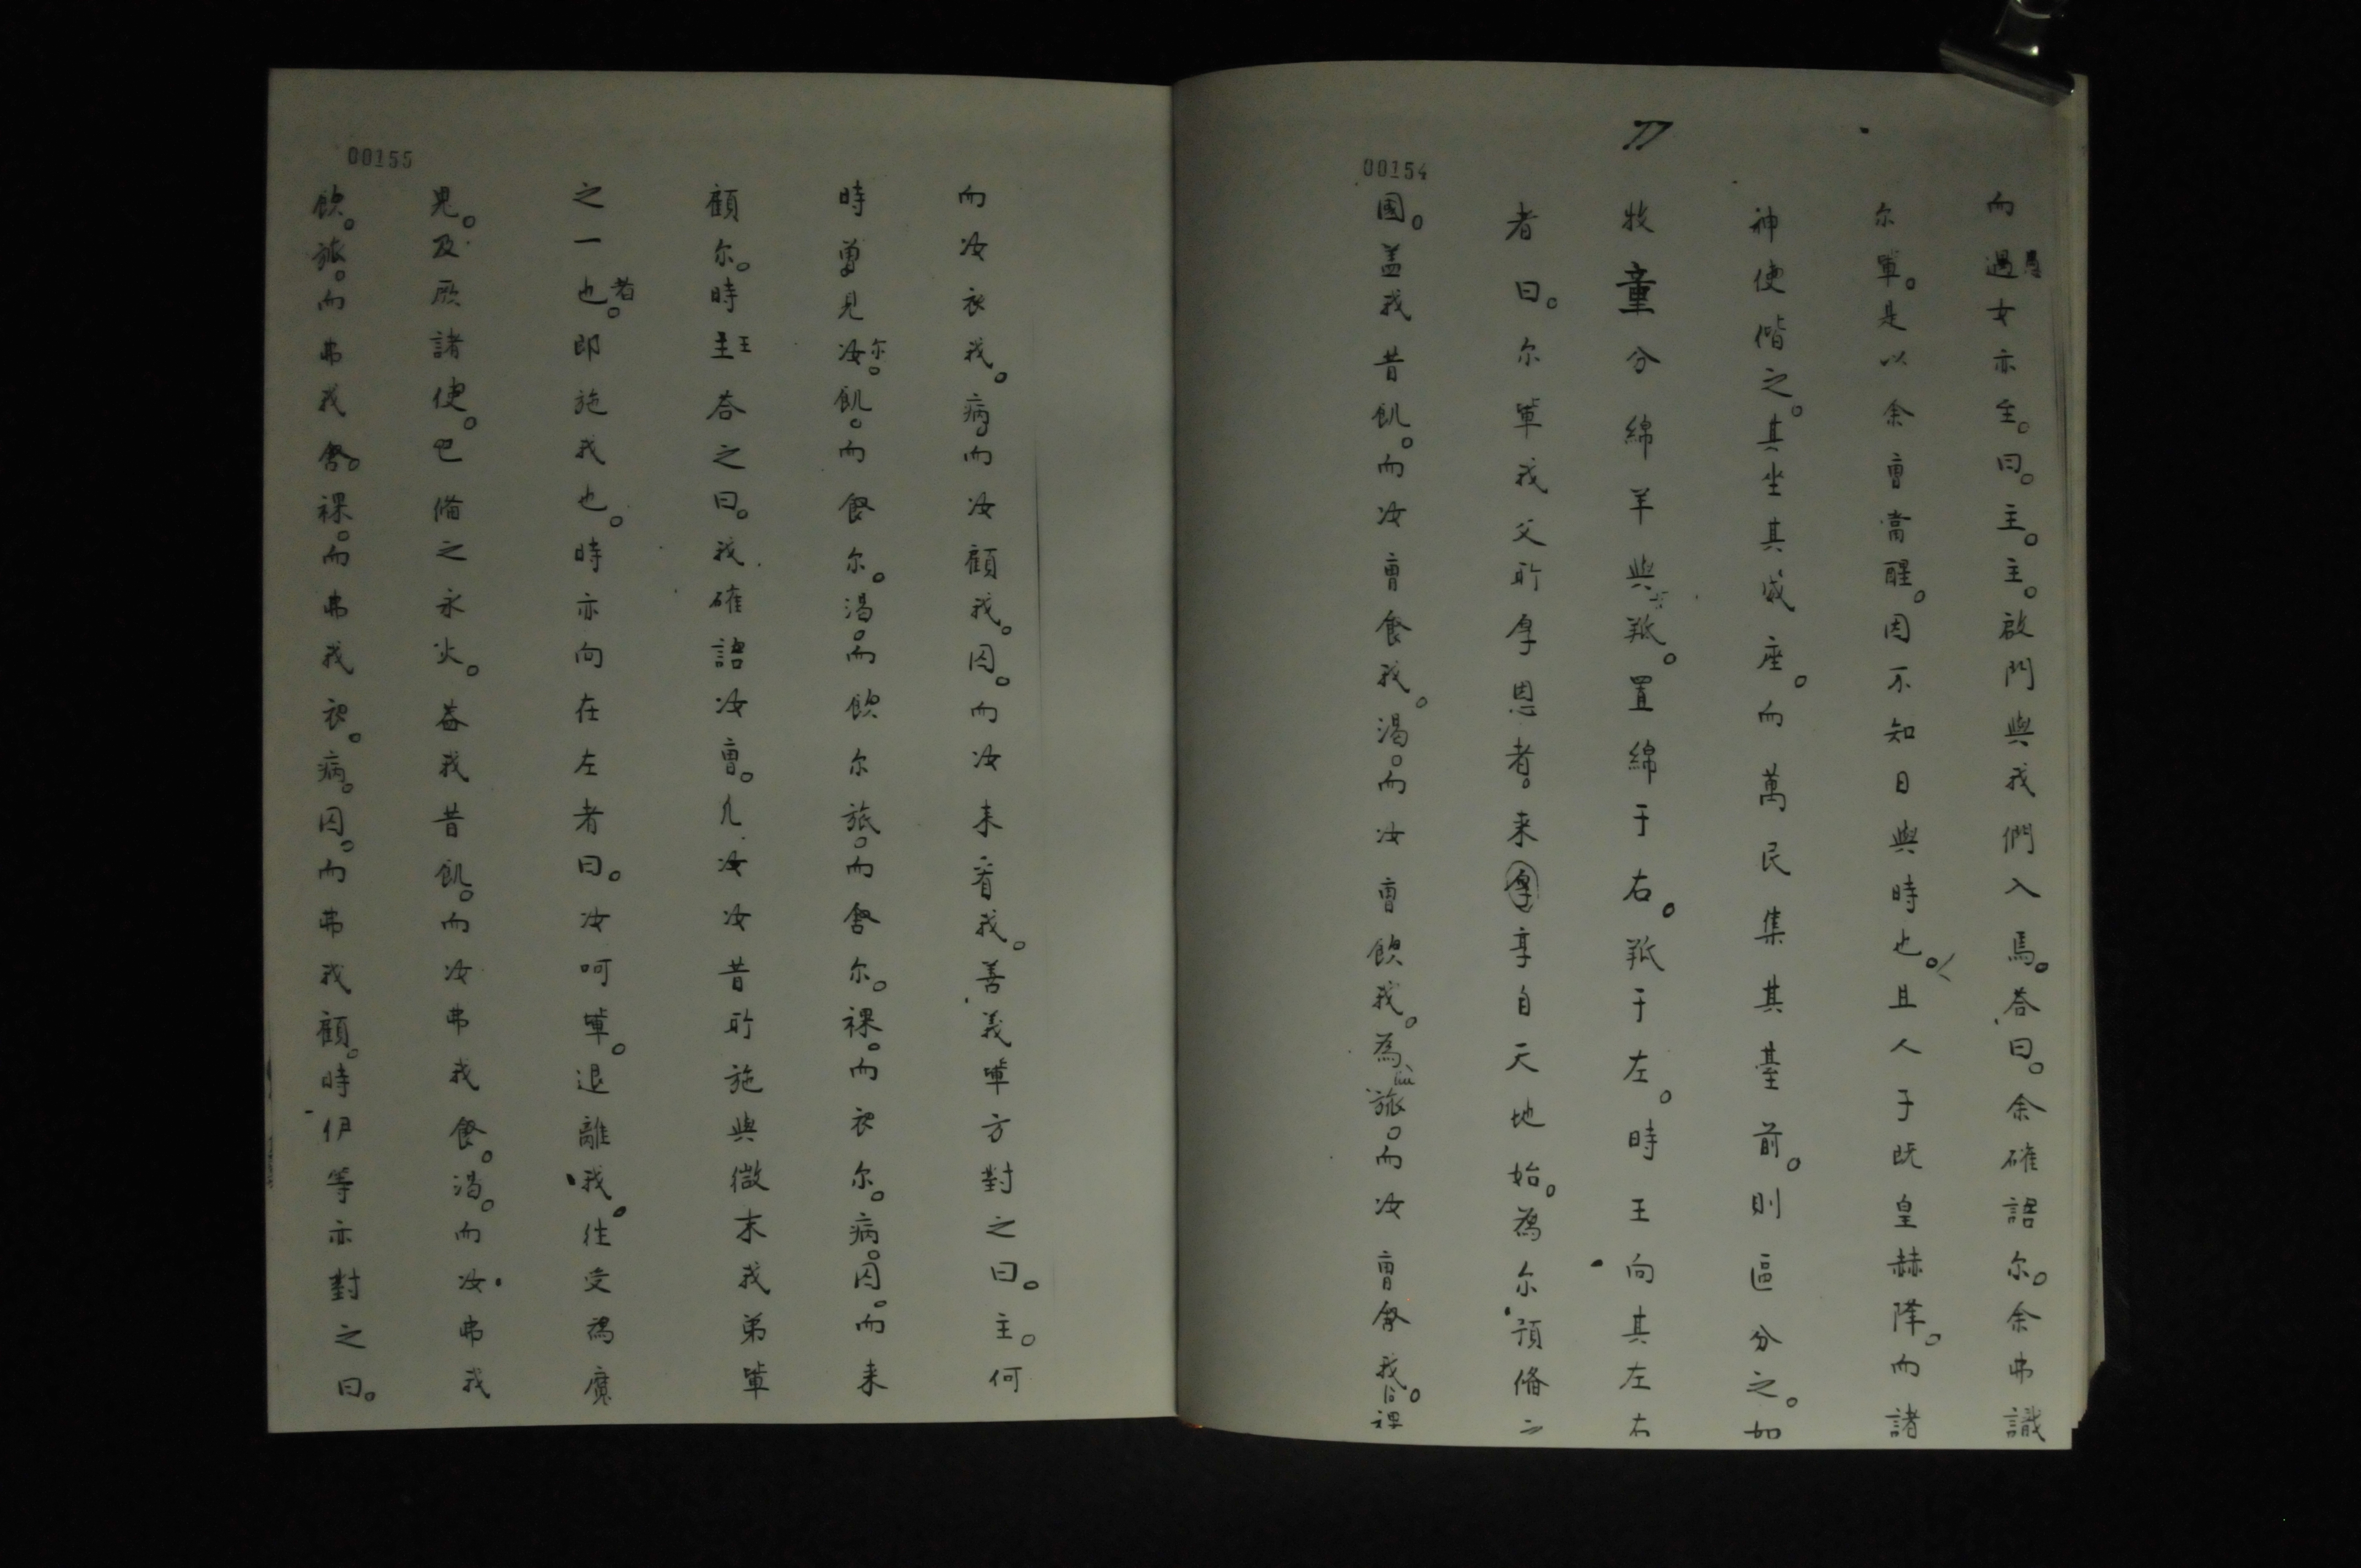 00154
77
而過愚女亦至。曰。主。主。啟門與我們入焉。荅曰。余確語尔。余弗識
尔軰。是以余曹當醒。因不知日與時也。且人子既皇赫降。而諸
神使偕之。其坐其威座。而萬民集其臺前。則區分之。如
牧童分綿羊與羝。置綿于右。羝于左。時王向其左右
者曰。尔軰我父所厚恩者。来厚享自天地始。為尔預俻之
國。盖我昔飢。而汝曹食我。渴。而汝曹飲我。為旅。而汝曹舍我。裸
00155
而汝衣我。病而汝顧我。囚。而汝来看我。善義軰方對之曰。主。何
時曽見汝尔。飢。而餐尔。渴。而飲尔旅。而舍尔。裸。而衣尔。病。囚。而来
顧尔。時主王荅之曰。我確語汝曹。凡汝汝昔所施與微末我弟軰
之一也者。即施我也。時亦向在左者曰。汝呵軰。退離我。往受為魔
鬼。及厥諸使。已俻之永火。盖我昔飢。而汝弗我餐。渴。而汝弗我
飲。旅。而弗我舍。裸。而弗我衣。病。囚。而弗我顧。時伊等亦對之曰。